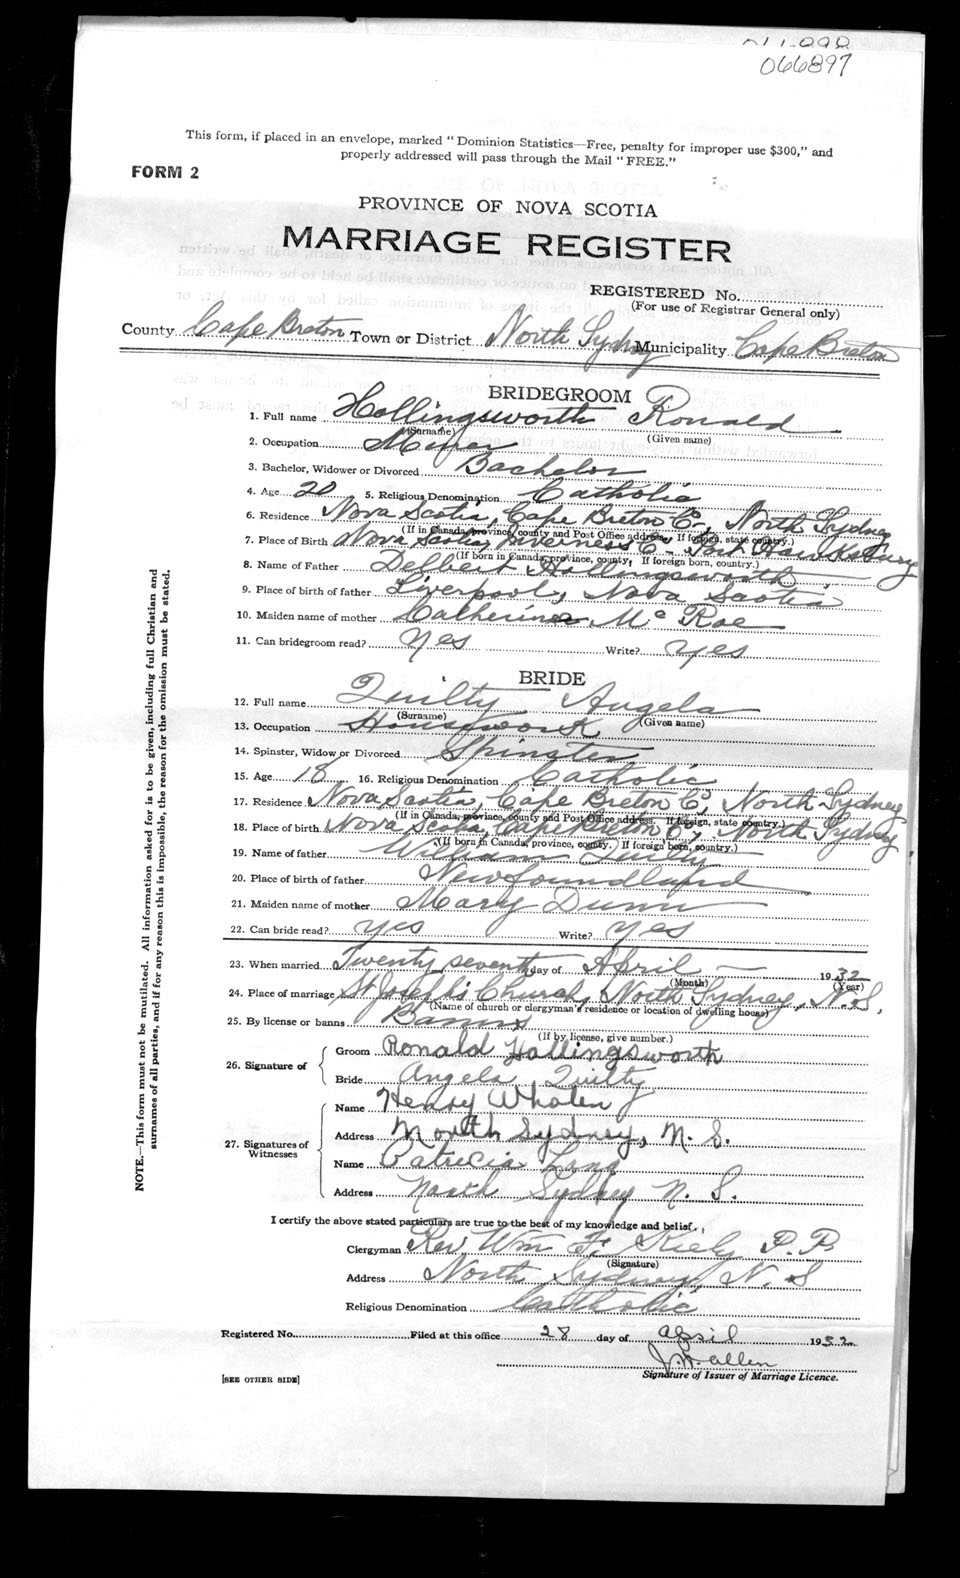 066897
This form, if placed in an envelope, marked "Dominion Statistics—Free, penalty for improper use $300," and
properly addressed will pass through the Mail "FREE."
FORM 2
PROVINCE OF NOVA SCOTIA
MARRIAGE REGISTER
REGISTERED No.
(For use of Registrar General only)
County Cape Breton Town or District North Sydney Municipality Cape Breton
BRIDEGROOM
1. Full name Hollingsworth Ronald
(Surname) (Given name)
2. Occupation Miner
3. Bachelor, Widower or Divorced Bachelor
4. Age 20 5. Religious Denomination Catholic
6. Residence Nova Scotia, Cape Breton Co, North Sydney
(If in Canada, province, county and Post Office address. If foreign, state country.)
7. Place of Birth Nova Scotia, Inverness Co - Port Hawkesbury
(If born in Canada, province, county; If foreign born, country.)
8. Name of Father Delbert Hollingsworth
9. Place of birth of father Liverpool, Nova Scotia
10. Maiden name of mother Catherine McRae
11. Can bridegroom read? Yes Write? yes
BRIDE
12. Full name Quilty Angela
(Surname) (Given name)
13. Occupation Housework
14. Spinster, Widow or Divorced Spinster
15. Age 18 16. Religious Denomination Catholic
17. Residence Nova Scotia, Cape Breton Co, North Sydney
(If in Canada, province, county and Post Office address. If foreign, state country.)
18. Place of birth Nova Scotia, Cape Breton Co, North Sydney
(If born in Canada, province, county. If foreign born, country.)
19. Name of father William Quilty
20. Place of birth of father Newfoundland
21. Maiden name of mother Mary Dunn
22. Can bride read? yes Write? yes
23. When married Twenty seventh day of April 1932
(Month) (Year)
24. Place of marriage St Joseph's Church, North Sydney, N.S.
(Name of church or clergyman's residence or location of dwelling house)
25. By license or banns Banns
(If by license, give number.)
26. Signature of Groom Ronald Hollingsworth
Bride Angela Quilty
27. Signatures of Witnesses Name Henry Whalen
Address North Sydney, N. S.
Name Patricia Long
Address North Sydney N. S.
I certify the above stated particulars are true to the best of my knowledge and belief.
Clergyman Rev Wm F. Kiely P.P.
(Signature)
Address North Sydney, N. S
Religious Denomination Catholic
Registered No. Filed at this office 28 day of April 1932
J. H. Allen
Signature of Issuer of Marriage Licence.
[SEE OTHER SIDE]
NOTE.—This form must not be mutilated. All information asked for is to be given, including full Christian and
surnames of all parties, and if for any reason this is impossible, the reason for the omission must be stated.